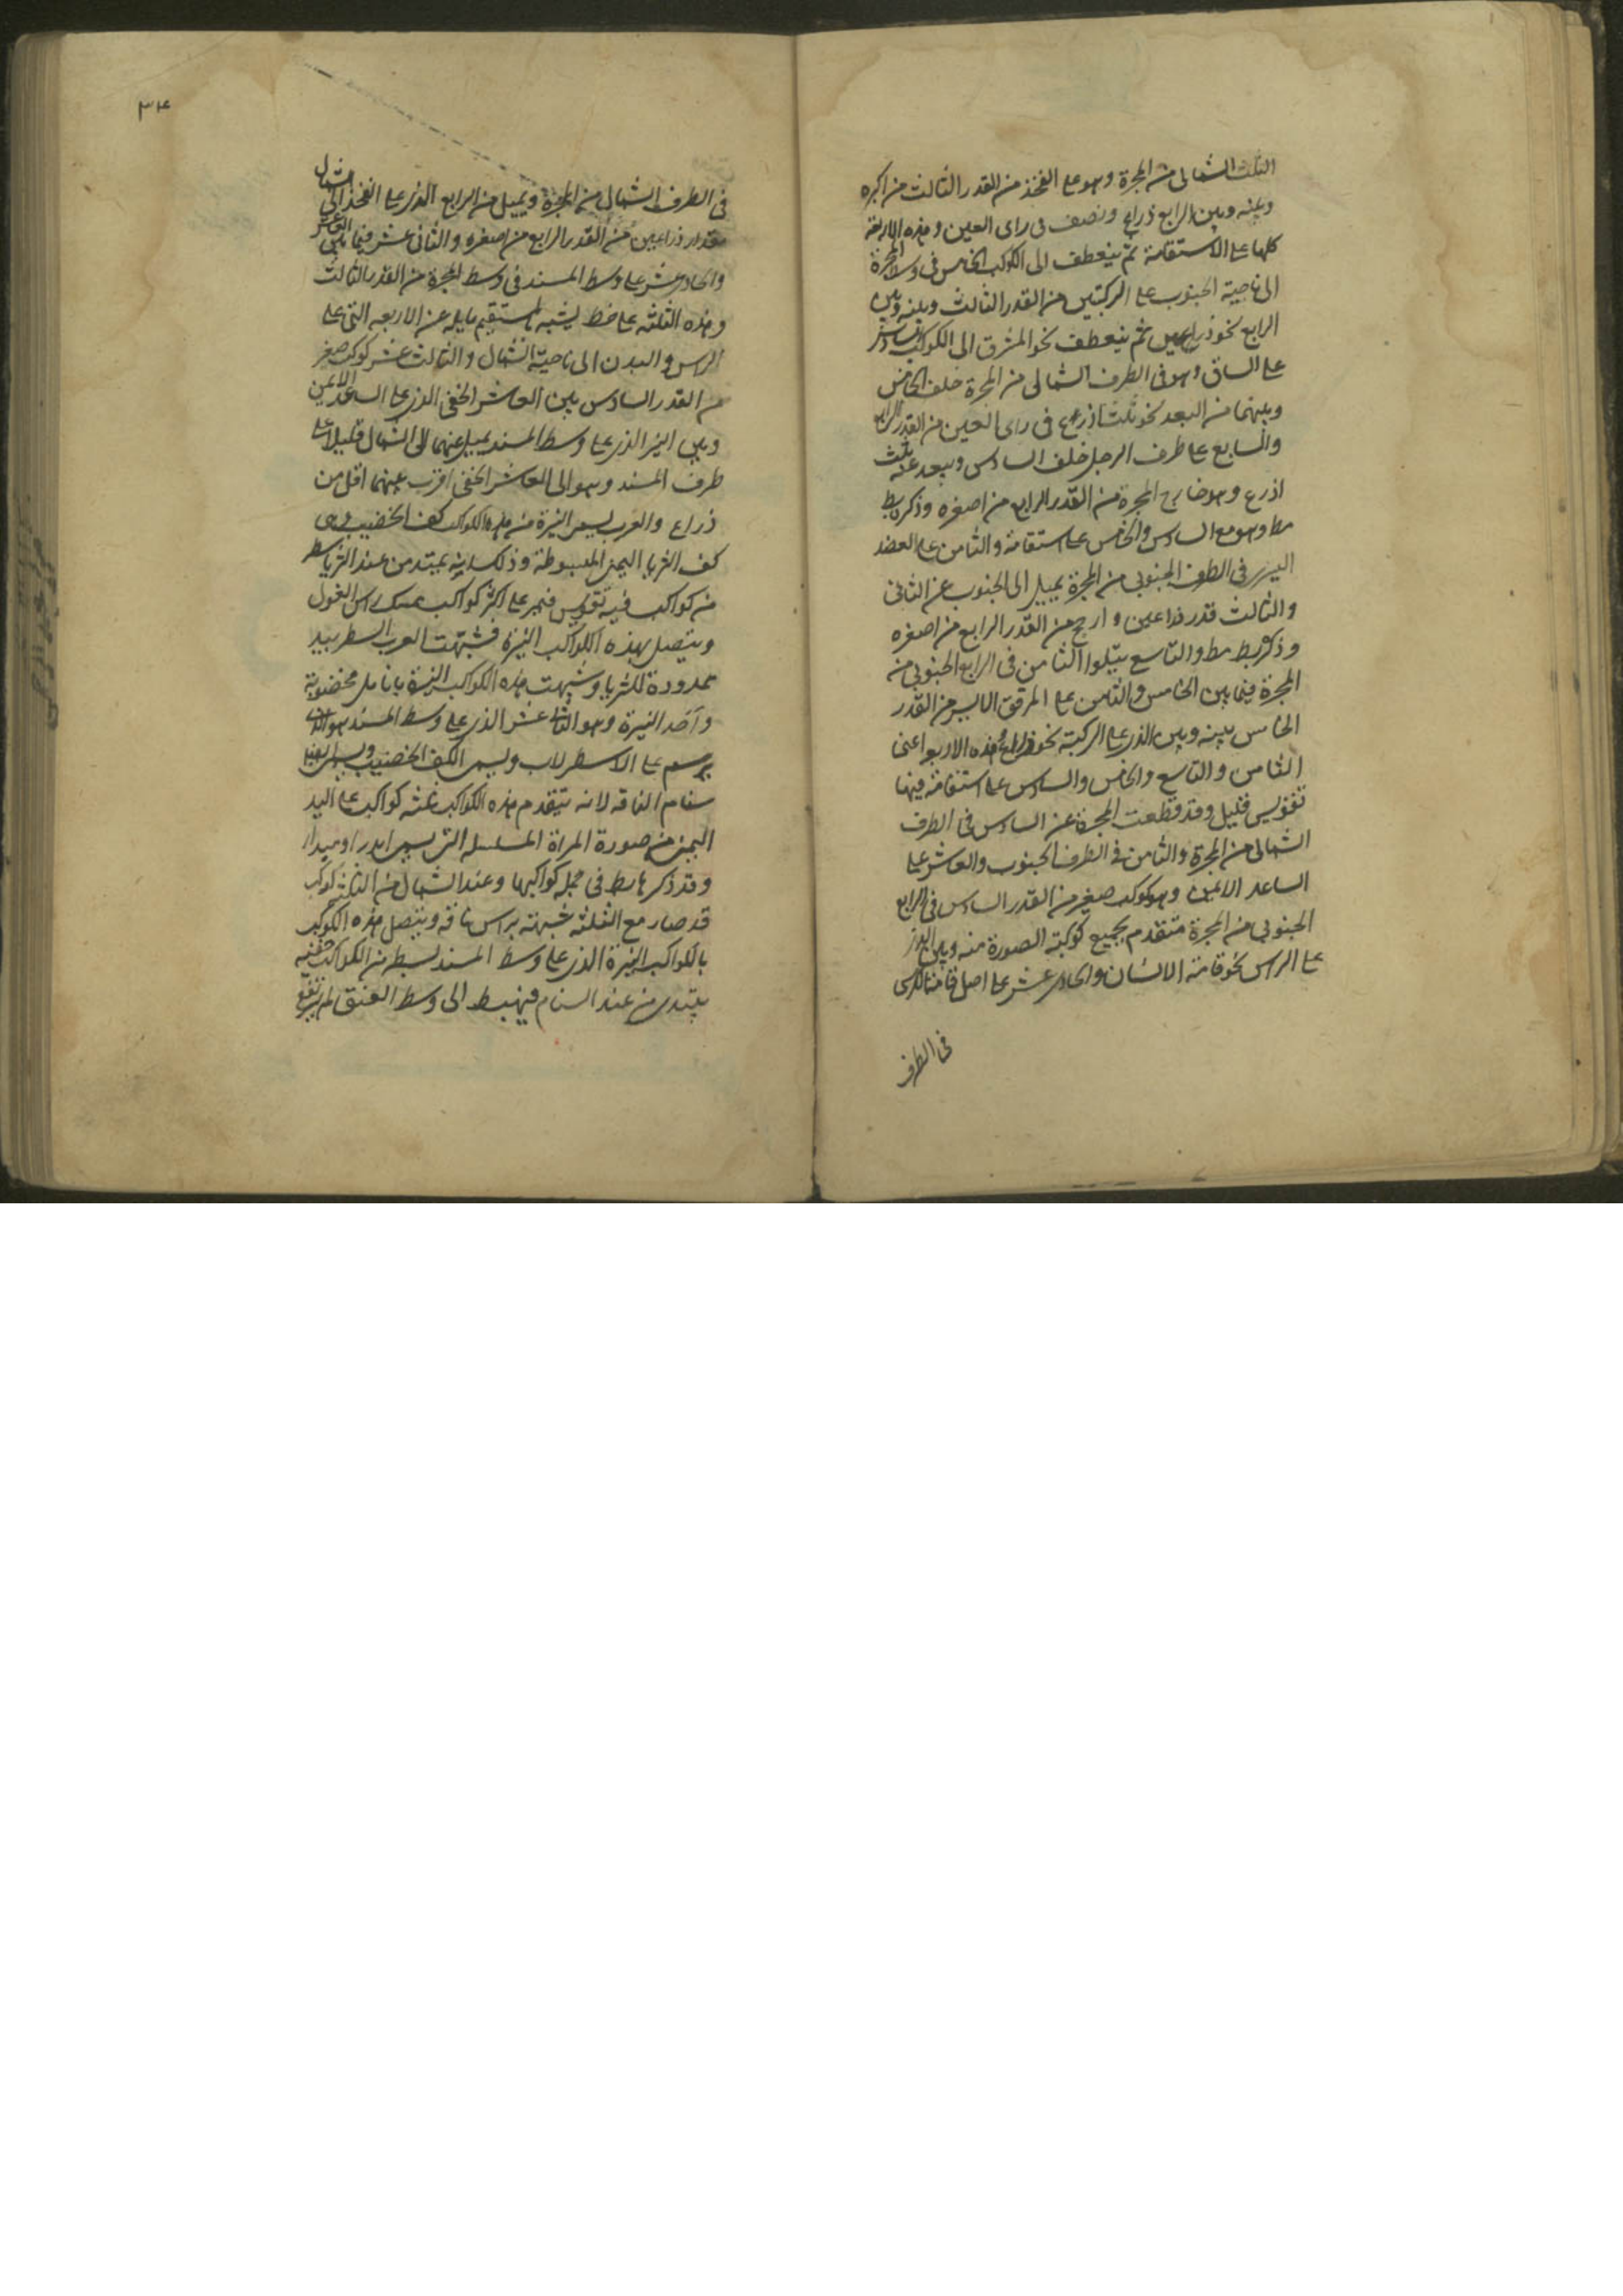 الثلث الشمالى من المجرة وهو على الفخذ من القدر الثالث من اكبره
وبينه وبين الرابع ذراع ونصف فى راى العين وهذه الاربعة
كلها على الاستقامة ثم ينعطف الى الكوكب الخامس فى وسط المجرة
الى ناحية الجنوب على الركبتين من القدر الثالث وبينه وبين
الرابع نحو ذراعين ثم ينعطف نحو المشرق الى الكوكب السادس
على الساق وهو فى الطرف الشمالى من المجرة خلف الخامس
وبينهما من البعد نحو ثلث اذرع فى راى العين من القدر الرابع
والسابع على طرف الرجل خلف السادس ويبعد عنه ثلث
اذرع وهو خارج المجرة من القدر الرابع من اصغره وذكر بط
مط وهو مع السادس والخامس على استقامة والثامن على العضد
اليسرى فى الطرف الجنوبى من المجرة يميل الى الجنوب عن الثانى
والثالث قدر ذراعين وارجح من القدر الرابع من اصغره
وذكر بط مط والتاسع يتلوا الثامن فى الرابع الجنوبى من
المجرة فيما بين الخامس والثامن على المرفق الايسر من القدر
الخامس بينه وبين الذى على الركبة نحو ذراع وهذه الاربع اعنى
الثامن والتاسع والخامس والسادس على استقامة فيها
تقويس قليل وقد قطعت المجرة عن السادس فى الطرف
الشمالى من المجرة والثامن فى الطرف الجنوب والعاشر على
الساعد الايمن وهو كوكب صغير من القدر السادس فى الرابع
الجنوبى من المجرة متقدم بجميع كوكبة الصورة منه وبين الذى
على الراس نحو قامة الانسان والحادى عشر على اصل قائمة الكرسى
فى الطرف
٣٤
فى الطرف الشمال من المجرة ويميل من الرابع الذى على الفخذ الى الشمال
مقدار ذراعين من القدر الرابع من اصغره والثانى عشر فيما بين العاشر
والحادى عشر على وسط المسند فى وسط المجرة من القدر الثالث
وهذه الثلثه على خط يشبه بالمستقيم مايله عن الاربعه التى على
الراس والبدن الى ناحية الشمال والثالث عشر كوكب صغير
من القدر السادس بين العاشر الخفى الذى على الساعد الايمن
وبين النير الذى على وسط المسند يميل عنهما الى الشمال قليلا على
طرف المسند وهو الى العاشر الخفى اقرب بينهما اقل من
ذراع والعرب يسمى النيرة من هذه الكواكب كف الخضيب وهى
كف الثريا اليمنى المبسوطة وذلك انه يمتد من عند الثريا سطر
من كواكب فيه تقويس فيمر على اكثر كواكب ممسك راس الغول
ويتصل بهذه الكواكب النيرة فشبهت العرب السطر بيد
ممدودة للثريا وشبهت هذه الكواكب النيرة بانامل مخضوبة
واحد النيرة وهو الثانى عشر الذى على وسط المسند هو الذى
يرسم على الاسطرلاب ويسمى الكف الخضيب ويسمى ايضا
سنام الناقه لانه يتقدم هذه الكواكب ثلثه كواكب على اليد
اليمنى من صورة المراة المسلسله التى يسمى اندراوميدا
وقد ذكرها بط فى جملة كواكبها وعند الشمال من الثلثه كوكب
قد صار مع الثلثه شبيهته براس ناقه ويتصل هذه الكوكب
بالكواكب النيرة الذى على وسط المسند بسطر من الكواكب خفيه
يبتدى من عند السنام فينهبط الى وسط العنق ثم يرتفع